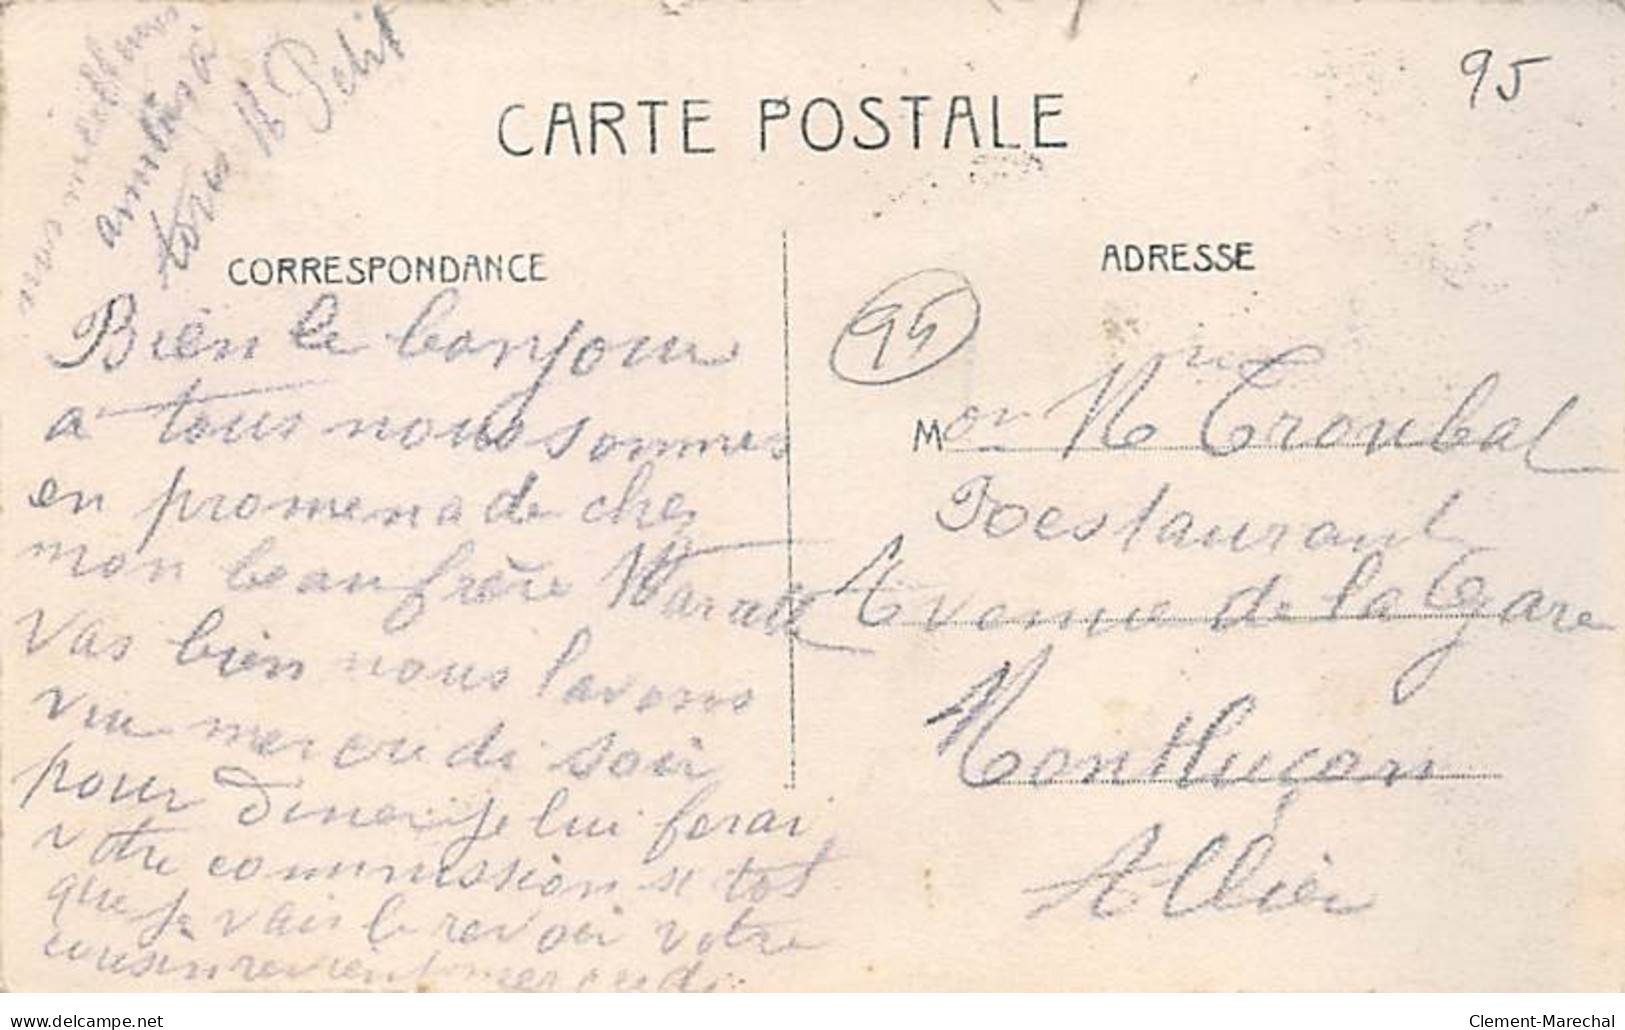 nos meilleures
amitiés à
tous M Petit
95
CARTE POSTALE
CORRESPONDANCE
ADRESSE
Bien le bonjour
a tous nous sommes
en promenade chez
mon beau frère
vas bien nous lavons
vu mercredi soir
pour diner je lui ferai
votre commission si tot
que je vais le revoir votre
cousin revient mercredi
95
Mon M Troubat
Restaurant
Avenue de la Gare
Montluçon
Allier
delcampe.net
Clement-Marechal